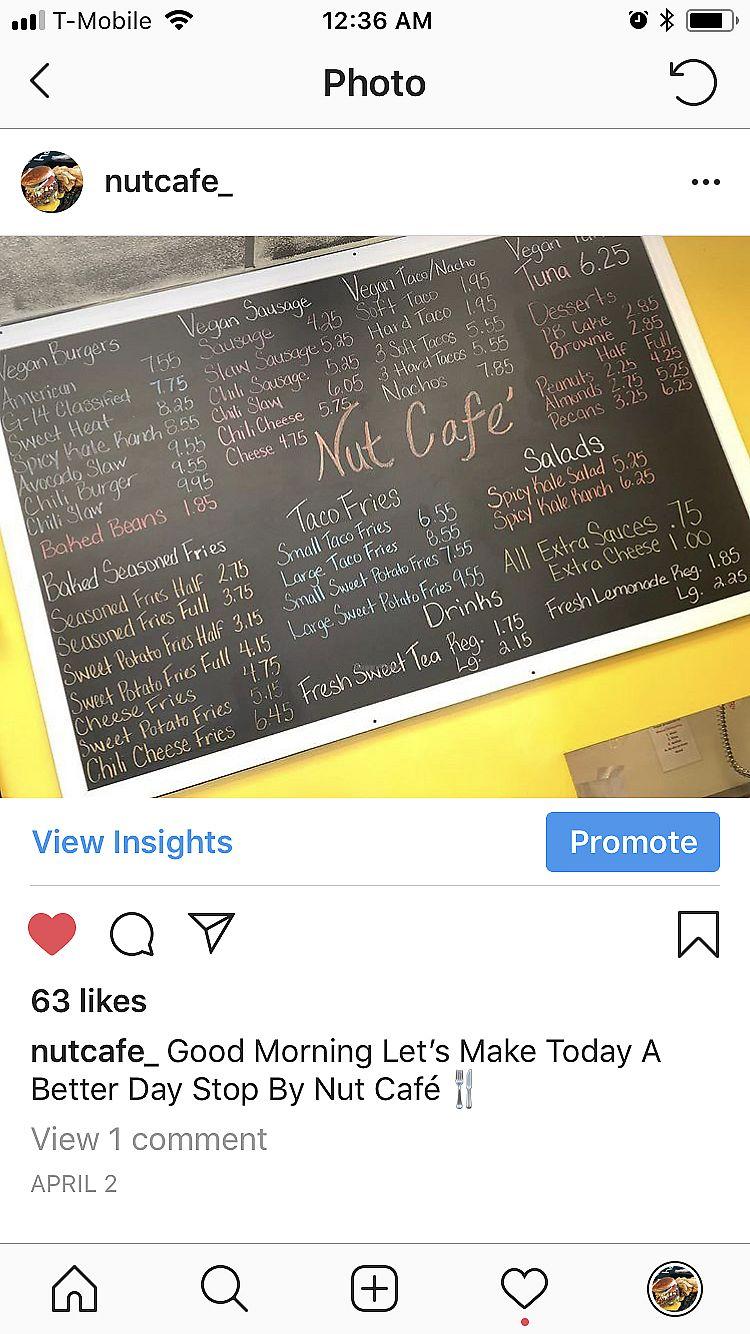 T-Mobile 12:36 AM
Photo
nutcafe_
Vegan Burgers
American 7.55
G-14 Classified 7.75
Sweet Heat 8.25
Spicy Kale Ranch 8.55
Avocado Slaw 9.55
Chili Burger 9.55
Chili Slaw 9.95
Baked Beans 1.85
Baked Seasoned Fries
Seasoned Fries Half 2.75
Seasoned Fries Full 3.75
Sweet Potato Fries Half 3.15
Sweet Potato Fries Full 4.15
Cheese Fries 4.75
Sweet Potato Fries 5.15
Chili Cheese Fries 6.45
Vegan Sausage
Sausage 4.25
Slaw Sausage 5.25
Chili Sausage 5.25
Chili Slaw 6.05
Chili Cheese 5.75
Cheese 4.75
Vegan Taco/Nacho
Soft Taco 1.95
Hard Taco 1.95
3 Soft Tacos 5.55
3 Hard Tacos 5.55
Nachos 7.85
Nut Café
Taco Fries
Small Taco Fries 6.55
Large Taco Fries 8.55
Small Sweet Potato Fries 7.55
Large Sweet Potato Fries 9.55
Drinks
Fresh Sweet Tea Reg. 1.75
Lg. 2.15
Vegan
Tuna 6.25
Desserts
PB Cake 2.85
Brownie 2.85
Half Full
Peanuts 2.25 4.25
Almonds 2.75 5.25
Pecans 3.25 6.25
Salads
Spicy Kale Salad 5.25
Spicy Kale Ranch 6.25
All Extra Sauces .75
Extra Cheese 1.00
Fresh Lemonade Reg. 1.85
Lg. 2.25
View Insights
Promote
63 likes
nutcafe_ Good Morning Let’s Make Today A
Better Day Stop By Nut Café 🍴
View 1 comment
APRIL 2